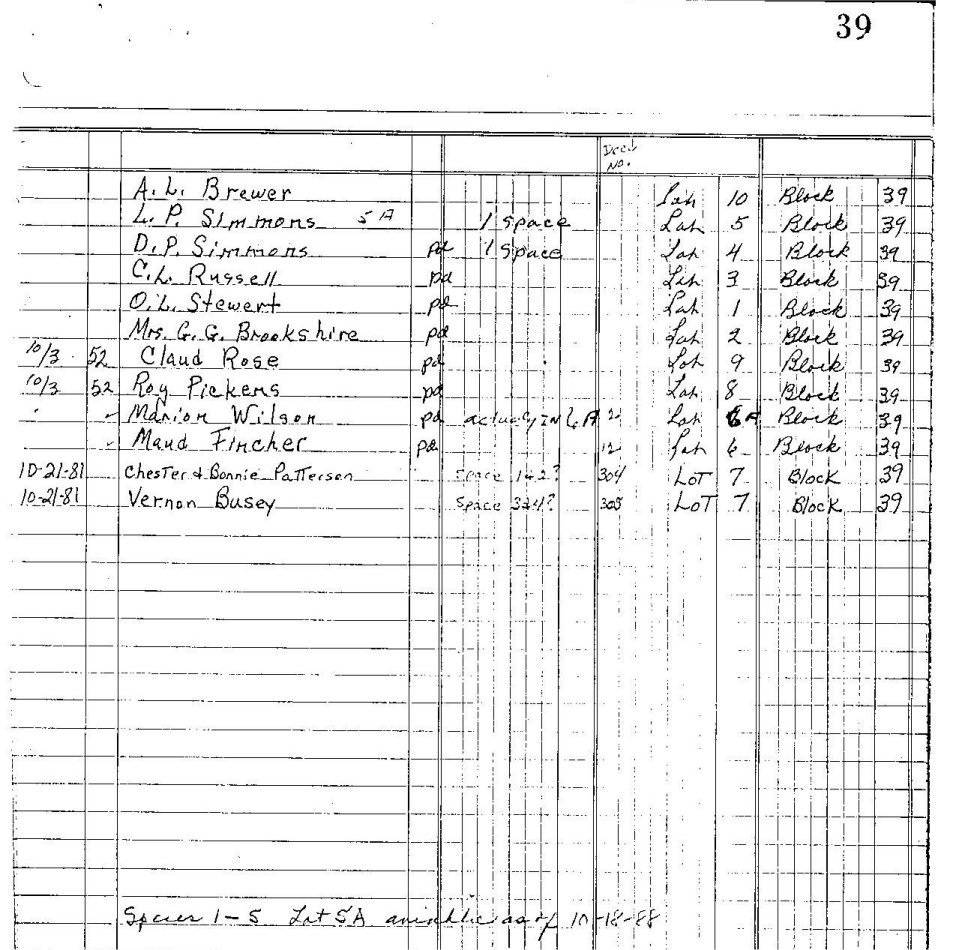 39
Deed
No.
A. L. Brewer Lot 10 Block 39
L. P. Simmons 5A 1 Space Lot 5 Block 39
D. P. Simmons pd 1 Space Lot 4 Block 39
C. L. Russell pd Lot 3 Block 39
O. L. Stewert pd Lot 1 Block 39
Mrs. G. G. Brookshire pd Lot 2 Block 39
10/3 52 Claud Rose pd Lot 9 Block 39
10/3 52 Roy Pickens pd Lot 8 Block 39
" " Marion Wilson pd actually in 6A 12 Lot 6A Block 39
" Maud Fincher pd 12 Lot 6 Block 39
10-21-81 Chester & Bonnie Patterson Space 1&2? 304 LoT 7 Block 39
10-21-81 Vernon Busey Space 3&4? 305 LoT 7 Block 39
Spaces 1-5 Lot 5A available as of 10-18-88